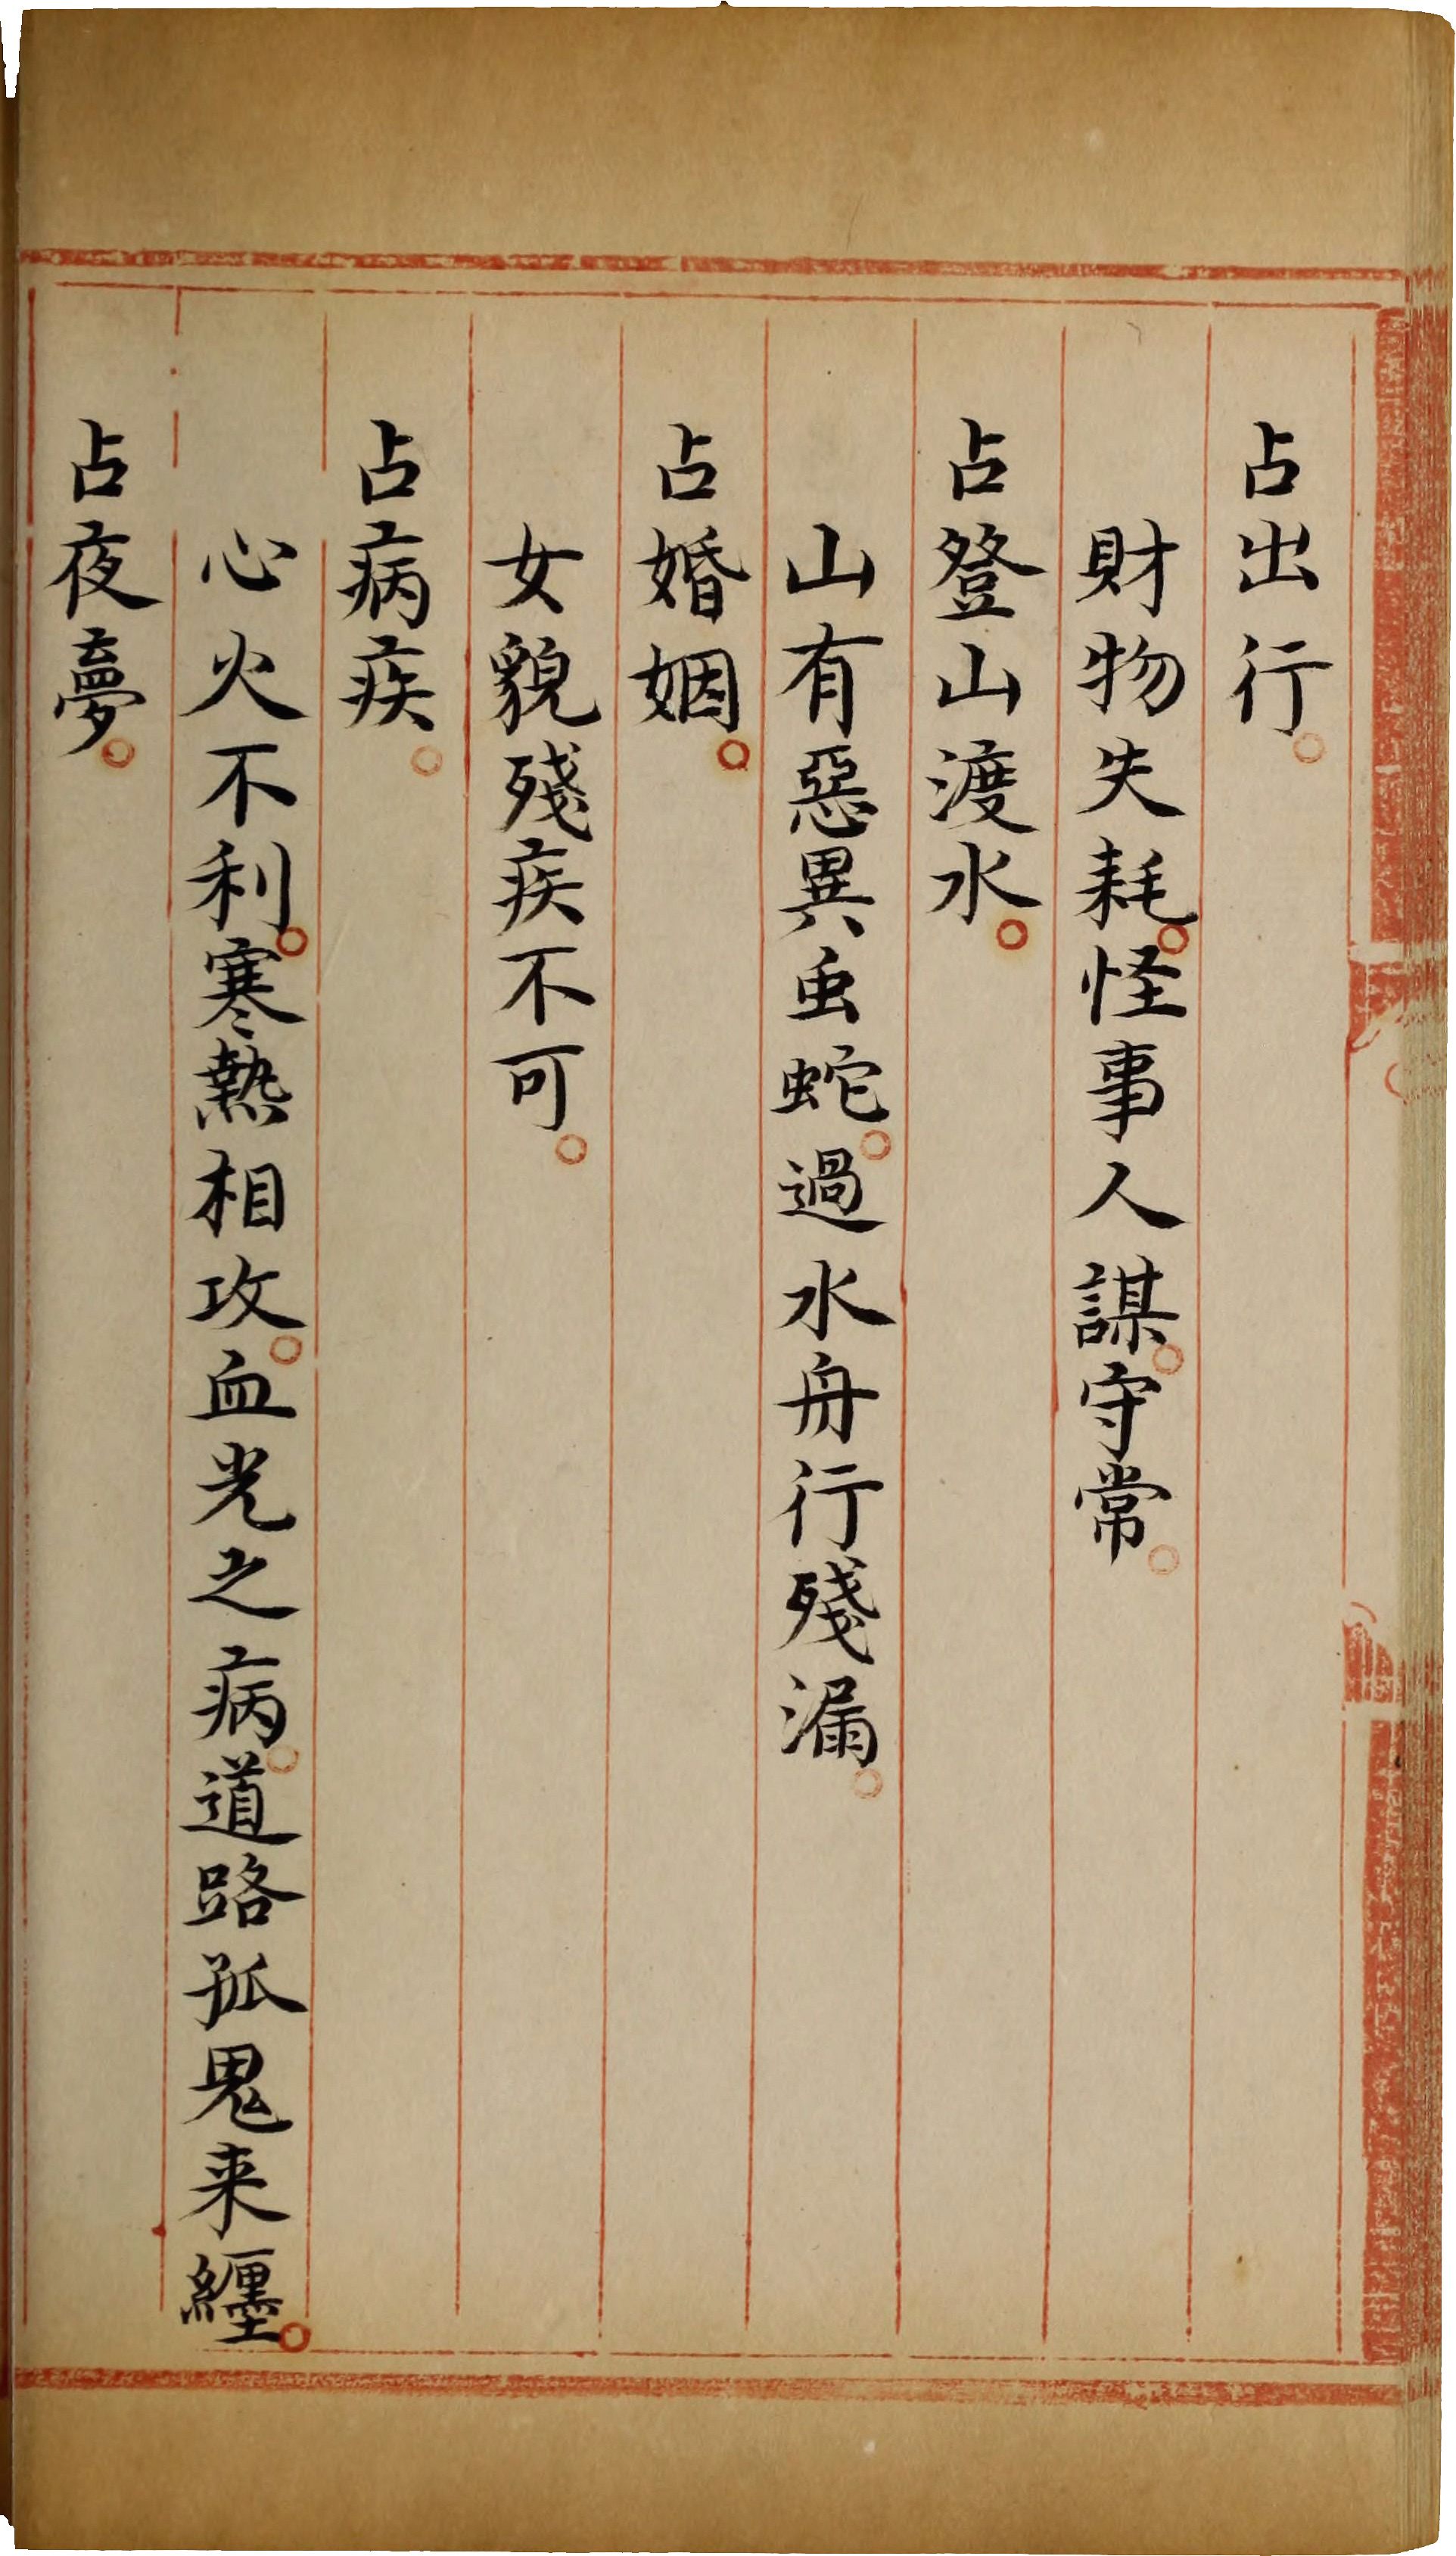 占出行。
財物失耗。怪事人謀。守常。
占登山渡水。
山有惡異虫蛇。過水舟行殘漏。
占婚姻。
女貌殘疾不可。
占病疾。
心火不利。寒熱相攻。血光之病。道路孤鬼来纒。
占夜夢。